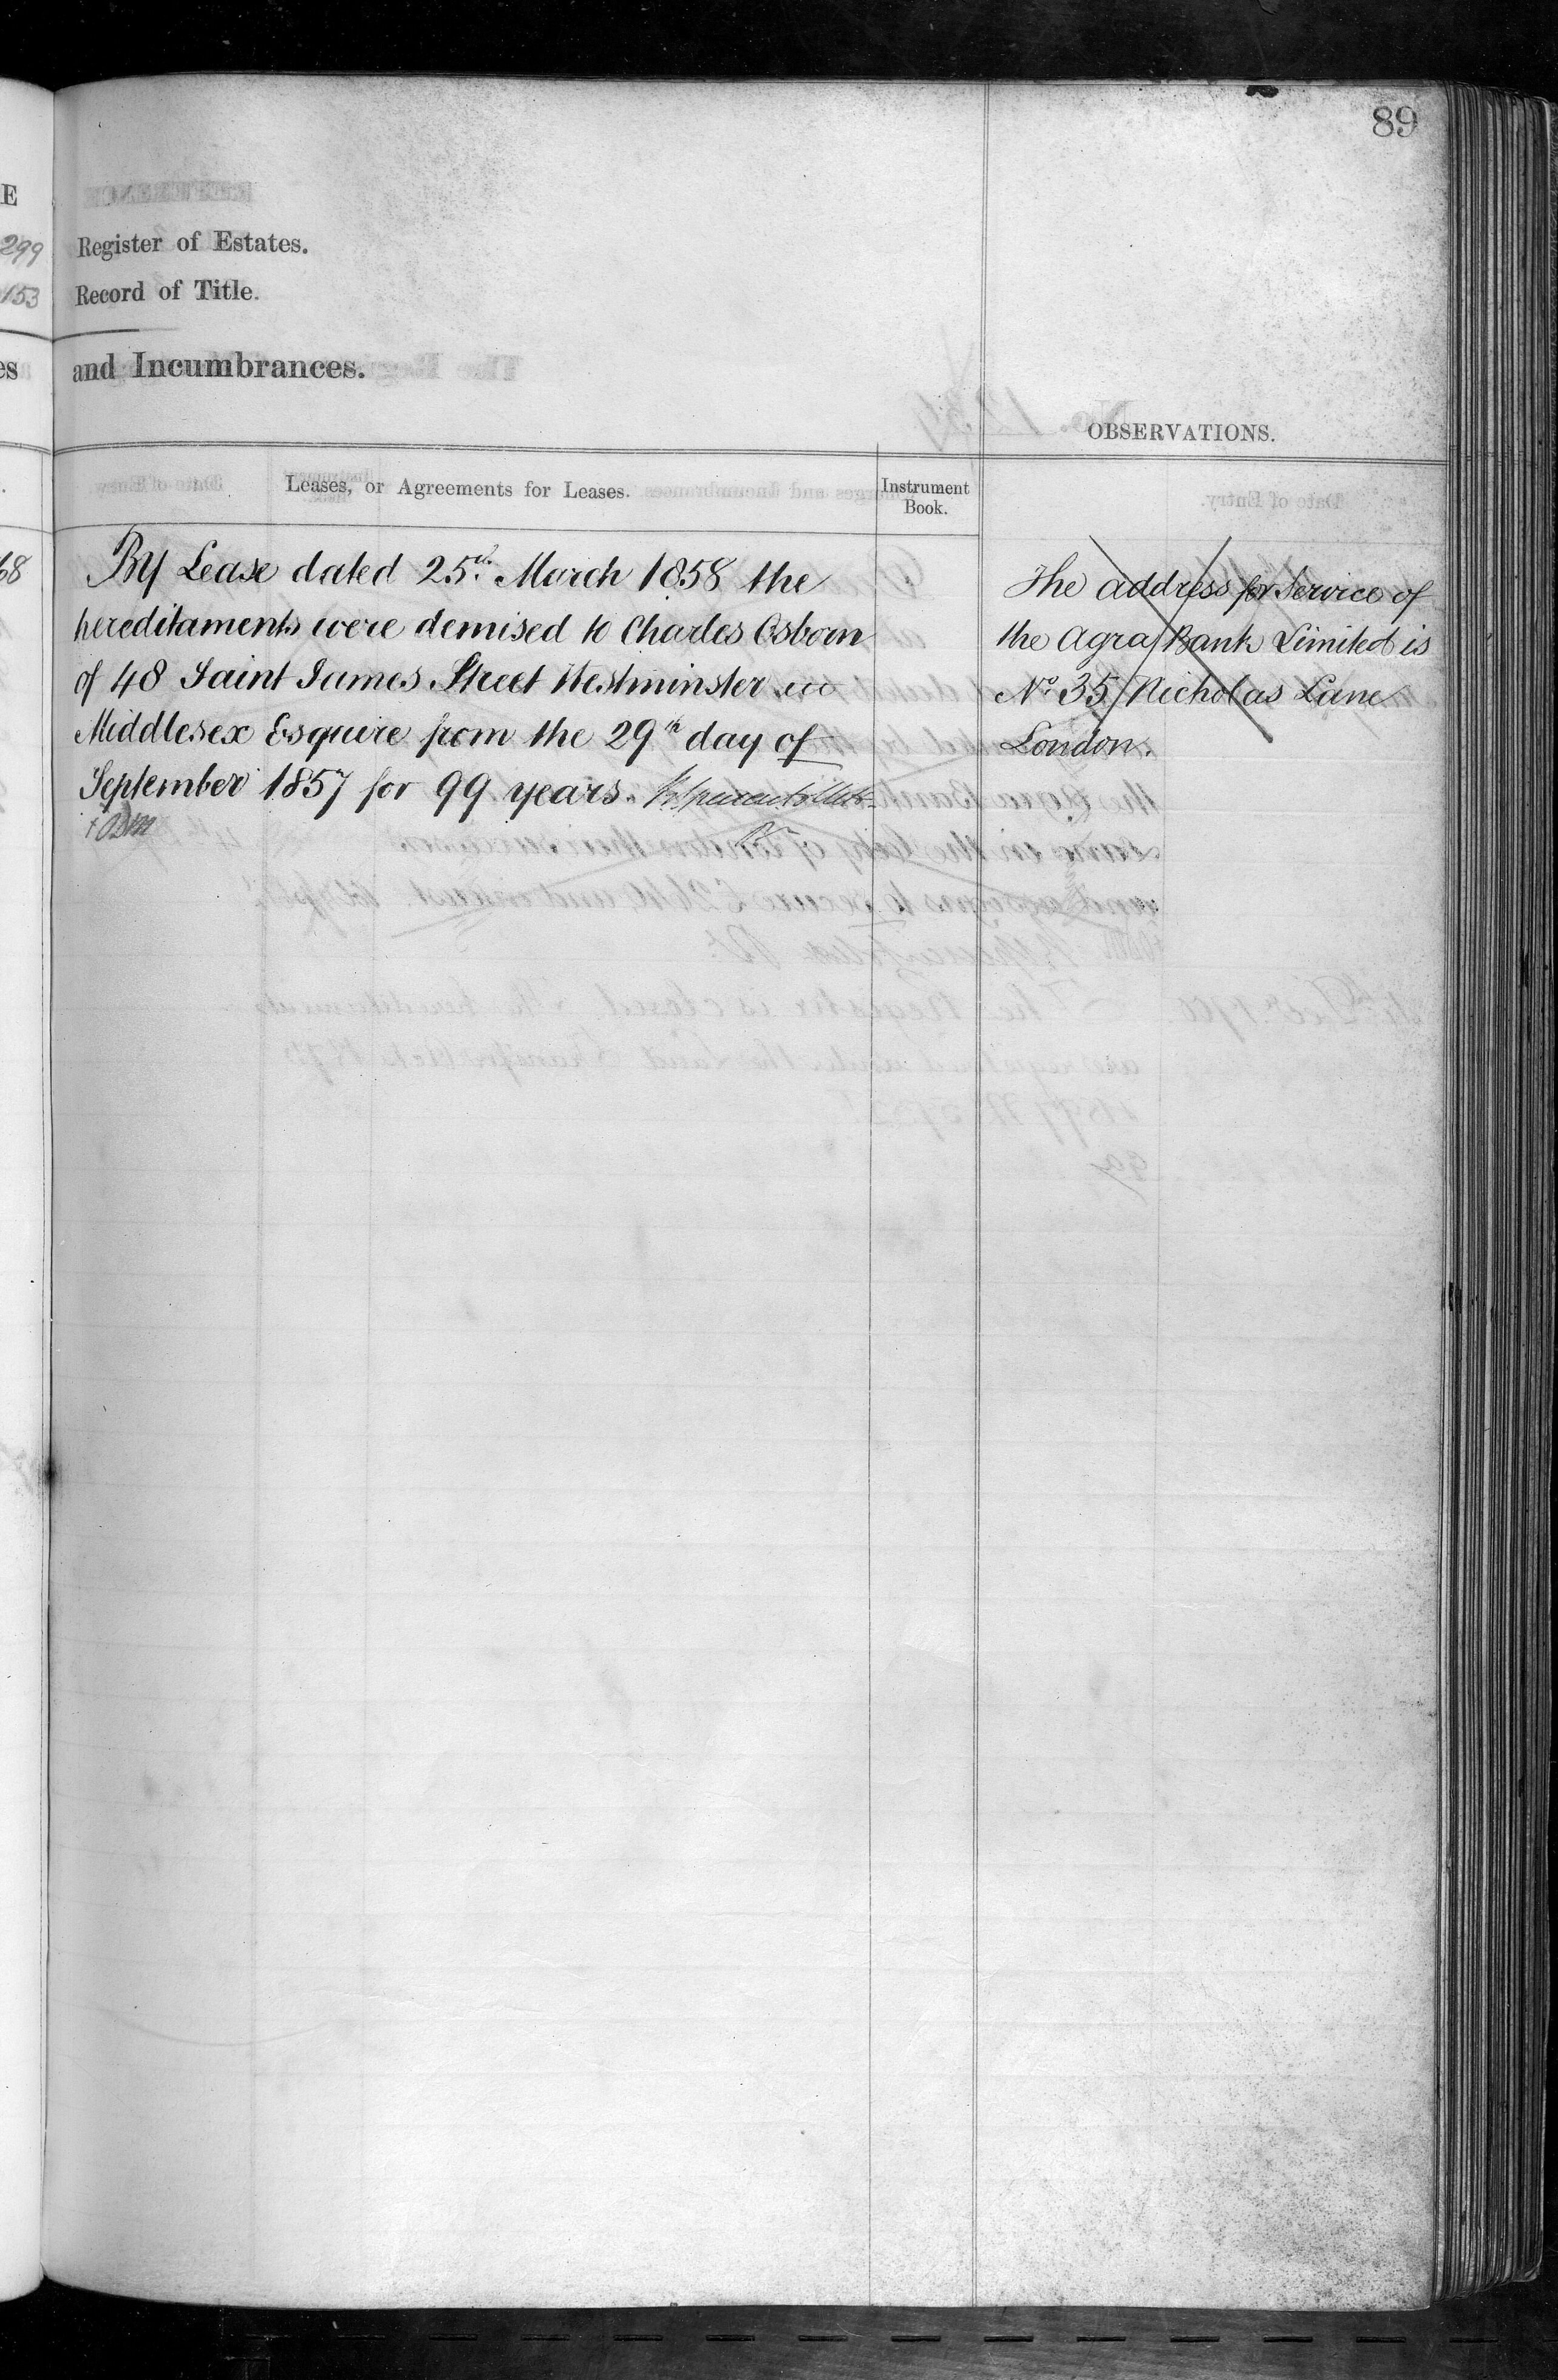 89
E
299
Register of Estates.
153
Record of Title.
es
and Incumbrances.
OBSERVATIONS.
Leases, or Agreements for Leases.
Instrument
Book.
68
By Lease dated 25th March 1858 the
hereditaments were demised to Charles Osborn
of 48 Saint James Street Westminster
Middlesex Esquire from the 29th day of
September 1857 for 99 years.
The address for Service of
the Agra Bank Limited is
No 35 Nicholas Lane
London.